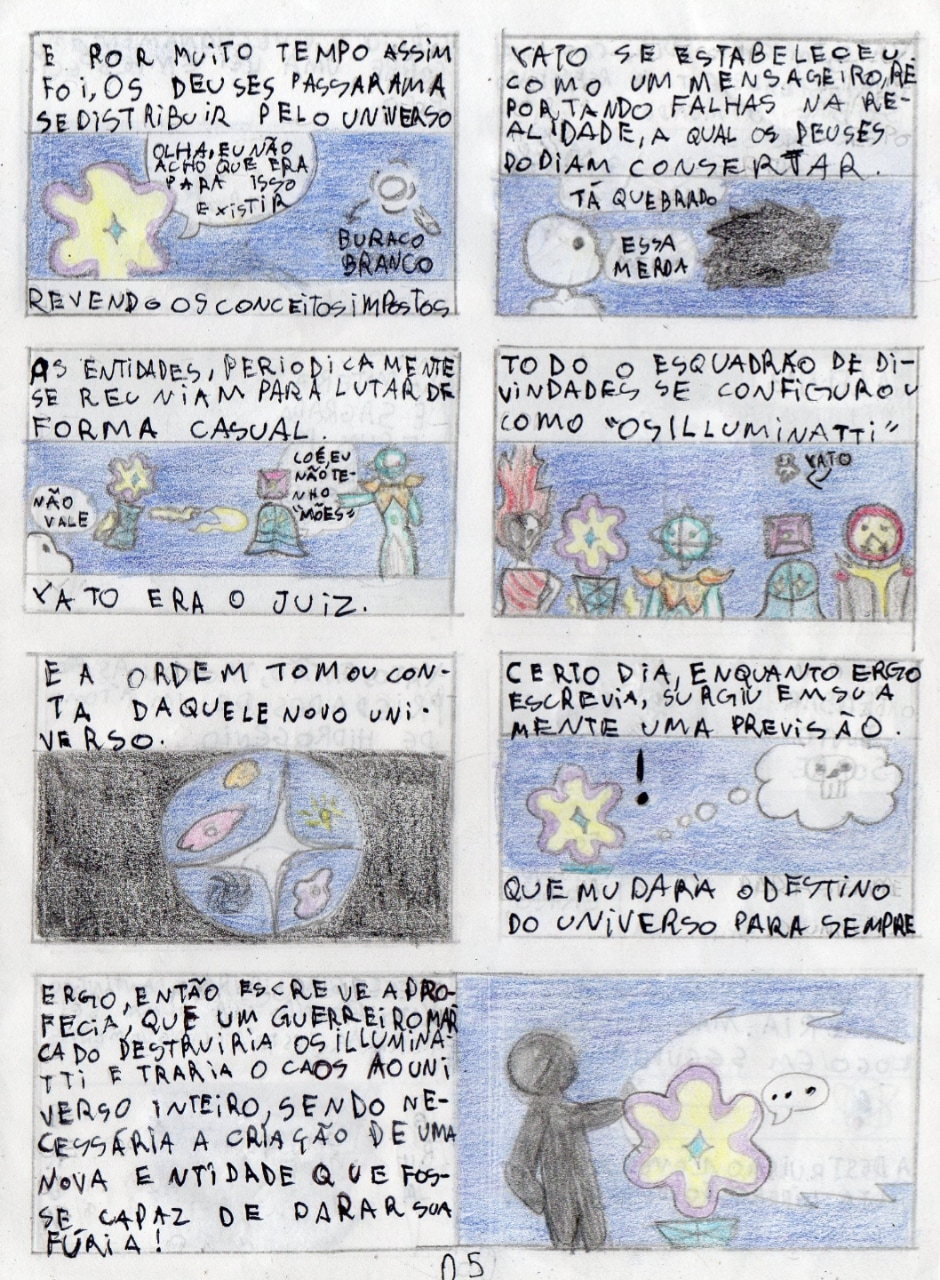 E POR MUITO TEMPO ASSIM
FOI, OS DEUSES PASSARAM A
SE DISTRIBUIR PELO UNIVERSO
OLHA, EU NÃO
ACHO QUE ERA
PARA ISSO
EXISTIR
BURACO
BRANCO
REVENDO OS CONCEITOS IMPOSTOS
YATO SE ESTABELECEU
COMO UM MENSAGEIRO, RE
PORTANDO FALHAS NA RE-
ALIDADE, A QUAL OS DEUSES
PODIAM CONSERTAR.
TÁ QUEBRADO
ESSA
MERDA
AS ENTIDADES, PERIODICAMENTE
SE REUNIAM PARA LUTAR DE
FORMA CASUAL.
NÃO
VALE
LOÉ, EU
NÃO TE-
NHO
"MÕES"
YATO ERA O JUIZ.
TODO O ESQUADRÃO DE DI-
VINDADES SE CONFIGUROU
COMO "OS ILLUMINATTI"
YATO
E A ORDEM TOMOU CON-
TA DAQUELE NOVO UNI-
VERSO.
CERTO DIA, ENQUANTO ERGO
ESCREVIA, SURGIU EM SUA
MENTE UMA PREVISÃO.
!
QUE MUDARIA O DESTINO
DO UNIVERSO PARA SEMPRE
ERGO, ENTÃO ESCREVE A PRO-
FECIA, QUE UM GUERREIRO MAR
CADO DESTRUIRIA OS ILLUMINA-
TTI E TRARIA O CAOS AO UNI
VERSO INTEIRO, SENDO NE-
CESSÁRIA A CRIAÇÃO DE UMA
NOVA ENTIDADE QUE FOS-
SE CAPAZ DE PARAR SUA
FÚRIA!
...
05